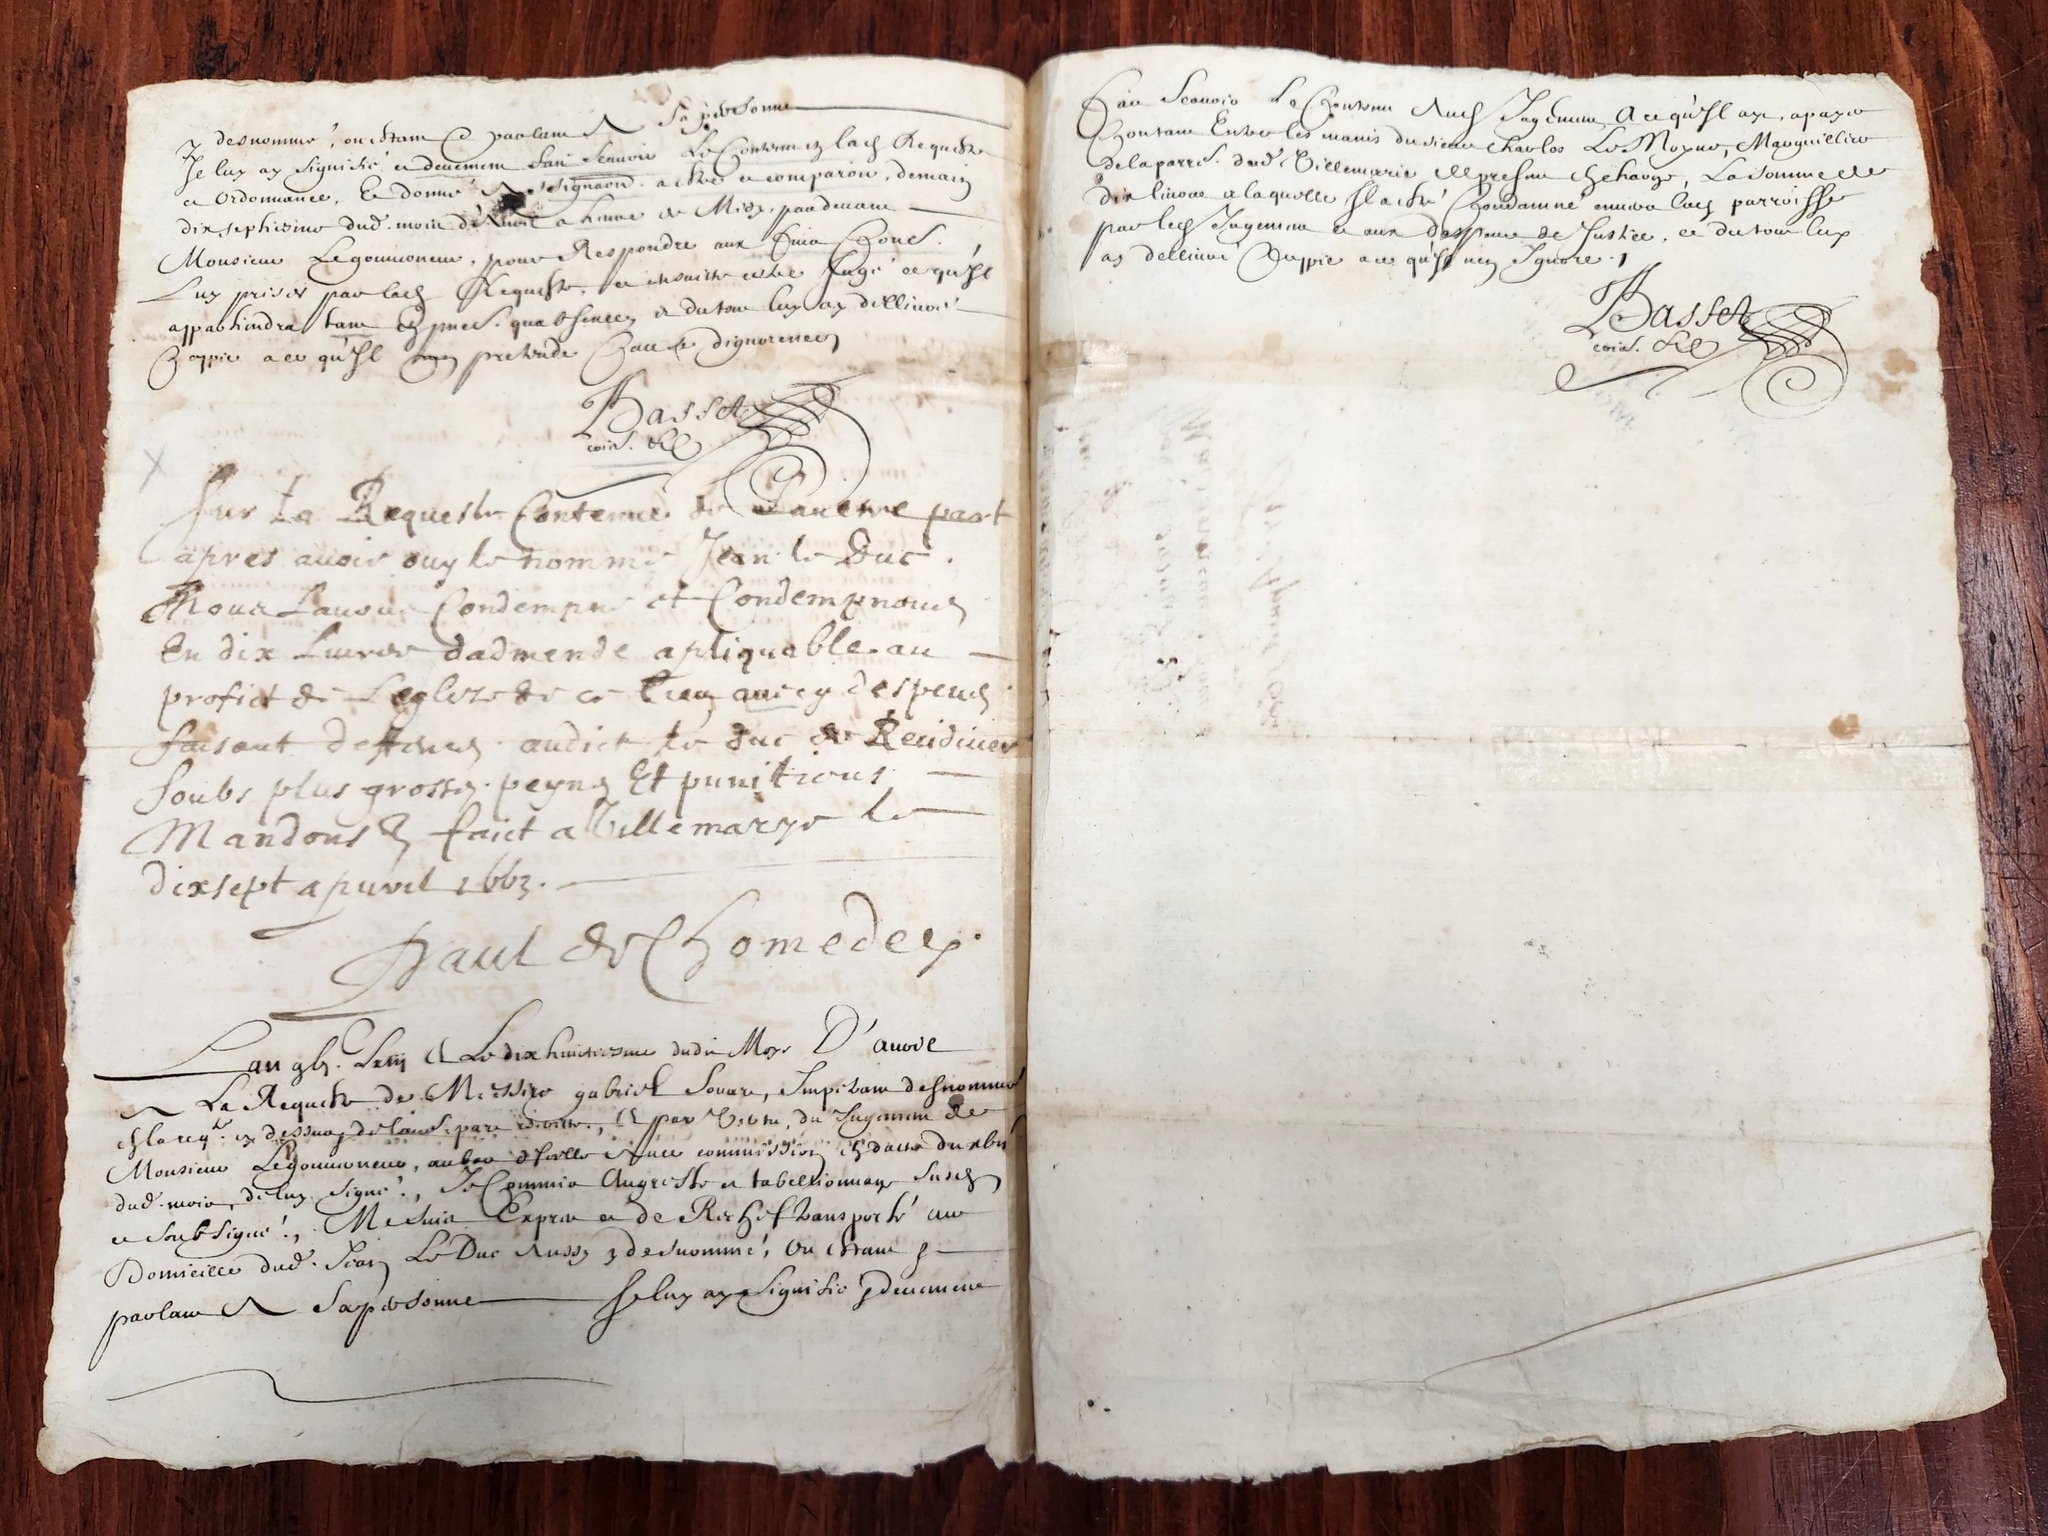 y desnommé, ou estant & parlant A sa personne
Je luy ay signiffié et deuement fait scauoir Le Contenu en lad. Requeste
et Ordonnance, Et donné Assignaon. a estre et comparoir, demain
dixseptiesme dud. mois d'Auril a heure de Midy, pardeuant
Monsieur Le gouuerneur, pour Respondre aux fins Concl.
Luy prises par lad. Requeste, et ensuitte estre Jugé ce qu'Il
appartiendra tant En pnce. qu'absence, et du tout luy ay delliuré
Coppie a ce qu'Il n'en pretende Cause d'ignorence
Basset
com. Gre
Sur La Requeste Contenue de Lautre part
apres auoir ouy le nomme Jean le Duc.
Nous Lauons Condempne et Condempnons
En dix Liures dadmende apliquable au
profict de Leglize de ce lieu auecq despens
faisant deffences audict le duc de Reidiuer
soubs plus grosses peynes Et punitions
Mandons & faict a Villemarye le
dixsept apuril 1663.
Paul de Chomedey.
L'an gbj. Lxiij & Le dixhuictiesme dudit Moys D'auril
A La Requeste de Messire gabriel Souart, Impetrant desnommé
En la reqte. cy dessus de l'autre part escritte, & par Vertu, du Jugement de
Monsieur Le gouuerneur, au bas d'Icelle Auec commission En datte du jour d'hier
dud. mois, de luy signé, Je Commis Au greffe et tabellionnage Susd.
et soubsigné, Me suis Exprés et de Rechef transporté au
Domicille dud. Jean Le Duc Aussy y desnommé, Ou estant &
parlant A sa personne Je luy ay signiffié & deuement
fait Scauoir Le Contenu Aud. Jugement, A ce qu'Il aye, a payer
Contant Entre les mains du sieur Charles Le Moyne, Marguillier
de la parroisse. dud. Villemarie Et present En charge, La somme de
dix liures a laquelle Il a esté Condamné enuers lad. parroisse
par led. Jugement et aux despens de Justice, et du tout luy
ay dellivré Coppie a ce qu'Il n'en Ignore.
Basset
com. Gre